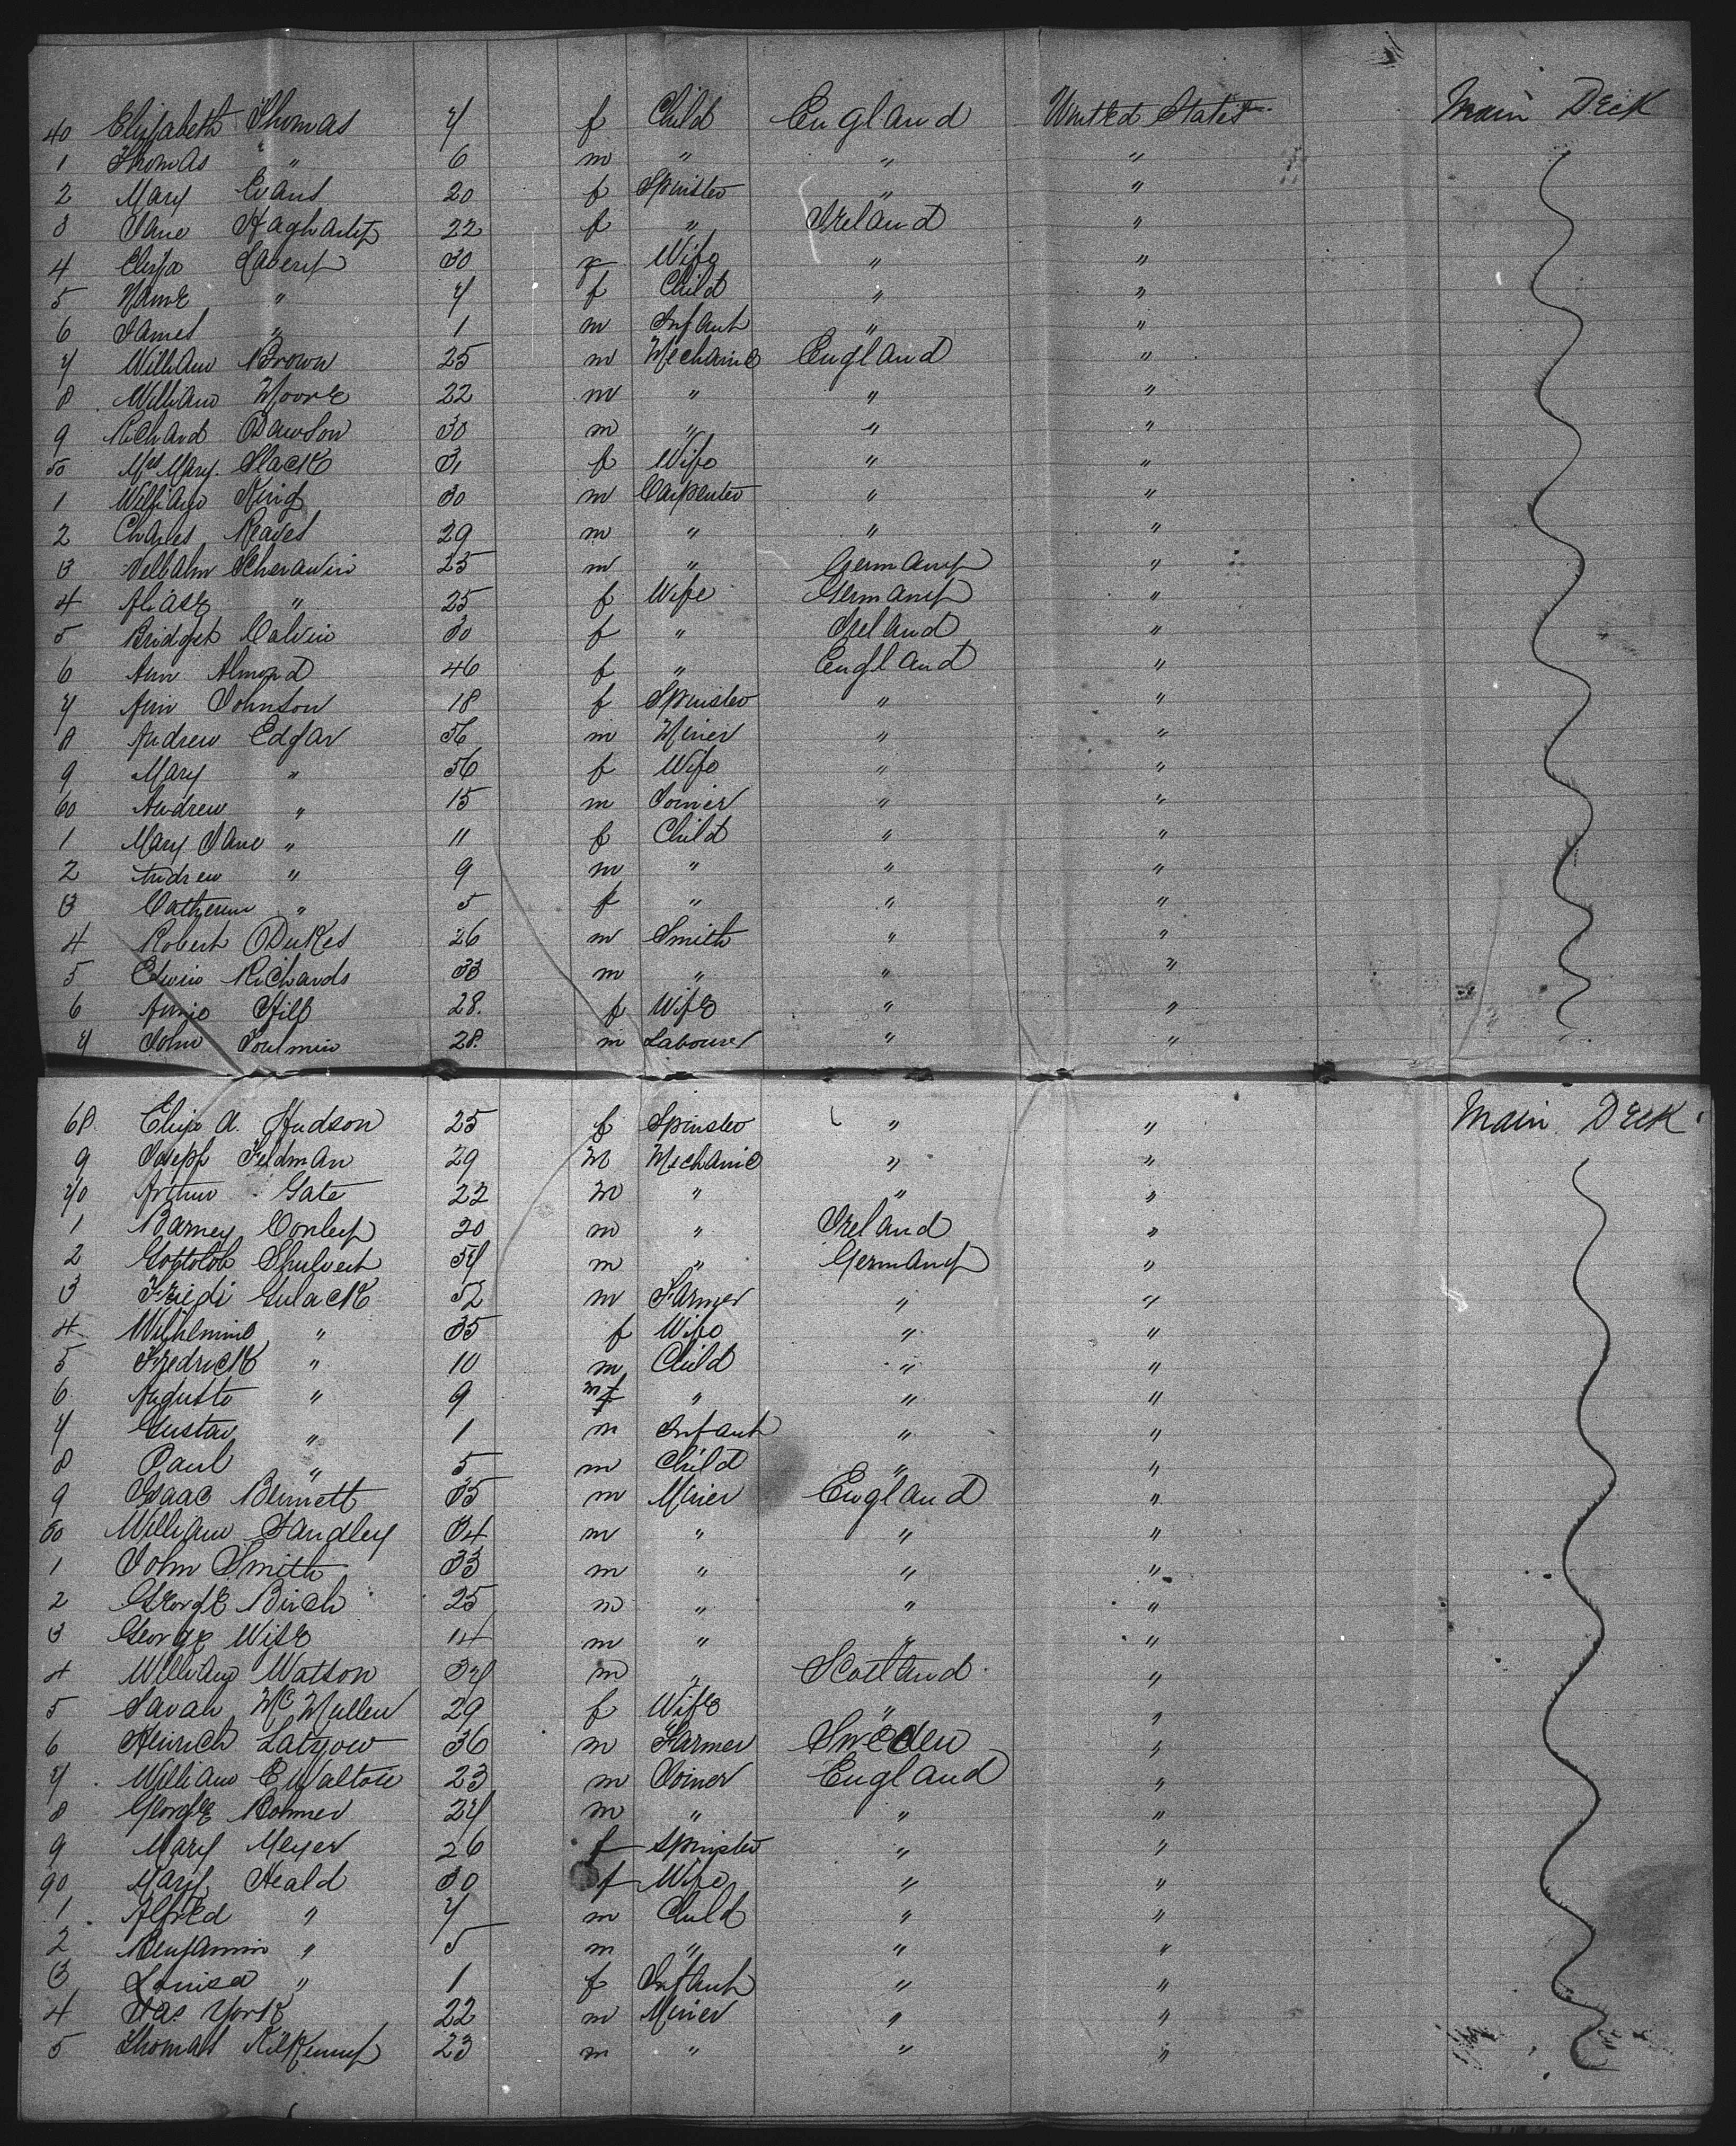 40 Elizabeth Thomas 7 f Child England United States Main Deck
1 Thomas " 6 m " " "
2 Mary Evans 20 f Spinster " "
3 Jane Haghartey 22 f " Ireland "
4 Eliza Lavery 30 f Wife " "
5 " 7 f Child " "
6 James " 1 m Infant " "
7 William Brown 25 m Mechanic England "
8 William Moore 22 m " " "
9 Richard Dawson 30 m " " "
50 Mrs Mary Slack 31 f Wife " "
1 William King 30 m Carpenter " "
2 Charles Reaves 29 m " " "
3 25 m " Germany "
4 " 25 f Wife Germany "
5 Bridget Calvin 30 f " Ireland "
6 Ann Almond 46 f " England "
7 Ann Johnson 18 f Spinster " "
8 Andrew Edgar 56 m Miner " "
9 Mary " 56 f Wife " "
60 Andrew " 15 m Joiner " "
1 Mary Jane " 11 f Child " "
2 Andrew " 9 m " " "
3 Catherine " 5 f " " "
4 Robert Dukes 26 m Smith " "
5 Edwin Richards 33 m " " "
6 Annie Hill 28. f Wife " "
7 John Toulmin 28. m Labourer " "
68 Eliza A. Hudson 25 f Spinster " " Main Deck
9 Joseph Feldman 29 m Mechanic " "
70 Arthur Gate 22 m " " "
1 Barney Conley 20 m " Ireland "
2 Gottolob Shulvert 54 m " Germany "
3 Friedi Gulack 52 m Farmer " "
4 Wilhelmine " 35 f Wife " "
5 Fredrick " 10 m Child " "
6 Auguste " 9 m f " " "
7 Gustav " 1 m Infant " "
8 Paul " 5 m Child " "
9 Isaac Bennett 35 m Miner England "
80 William Sandley 34 m " " "
1 John Smith 33 m " " "
2 George Birch 25 m " " "
3 George Wise 14 m " " "
4 William Watson 37 m " Scotland "
5 Sarah McMullen 29 f Wife " "
6 Heinrich Latzow 36 m Farmer Sweden "
7 William E Walton 23 m Joiner England "
8 George Bonner 27 m " " "
9 Mary Meyer 26 f Spinster " "
90 Mary Heald 30 f Wife " "
1 Alfred " 7 m Child " "
2 Benjamin " 5 m " " "
3 Louisa " 1 f Infant " "
4 Jas. York 22 m Miner " "
5 Thomas Kilkenny 23 m " " "